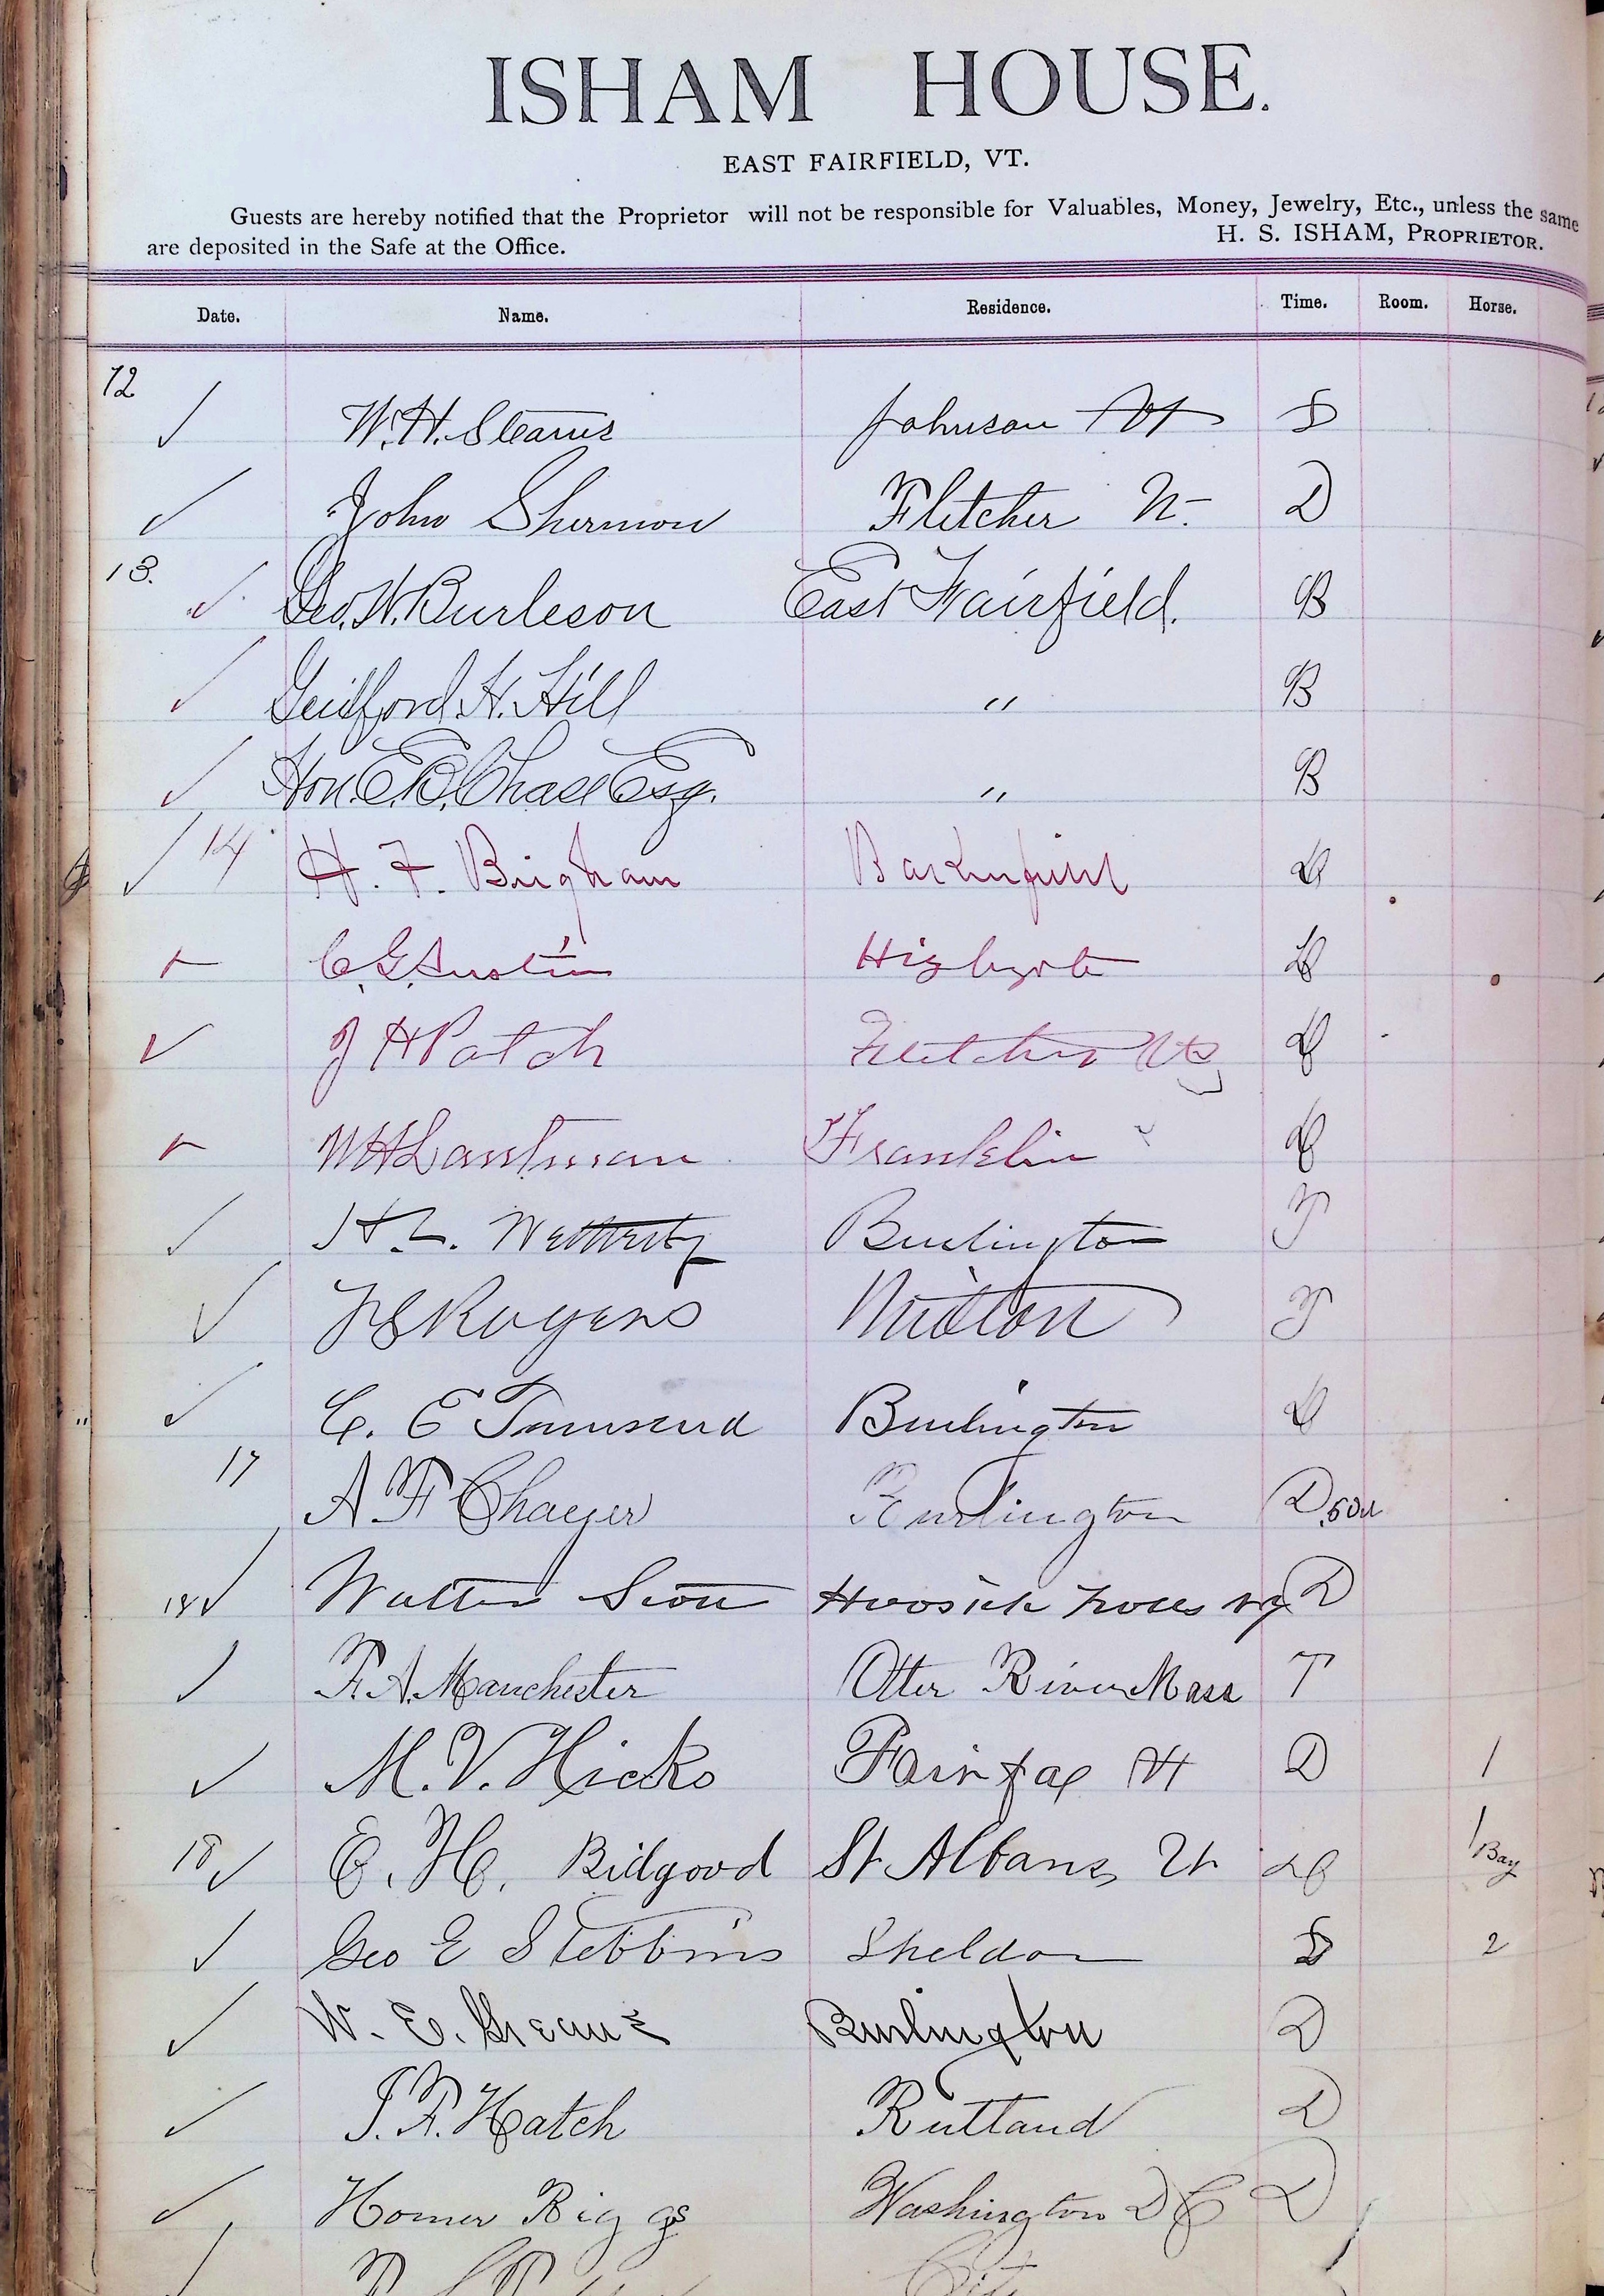 ISHAM HOUSE.
EAST FAIRFIELD, VT.
Guests are hereby notified that the Proprietor will not be responsible for Valuables, Money, Jewelry, Etc., unless the same
are deposited in the Safe at the Office. H. S. ISHAM, PROPRIETOR.
Date. Name. Residence. Time. Room. Horse.
12
✓ W. H. Stearns Johnson Vt S
✓ John Shermon Fletcher Vt. D
13.
✓ Geo. W. Burleson East Fairfield. B
✓ Guilford H. Hill " B
✓ Hon. E. B. Chase Esq. " B
✓ 14 H. F. Brigham Bakersfield
C. G. Austin Highgate
✓ J H Patch Fletcher Vt
W H Lantman Franklin "
✓ H. L. Burlington
✓ Rogers Milton
✓ C. E Townsend Burlington
17
A F Burlington D
18 ✓ Walter Scott Hoosick Falls NY D
✓ F. A. Manchester Otter River Mass T
✓ M. V. Hicks Fairfax Vt D 1
18 ✓ E. H. Bidgood St Albans Vt 1 Bay
✓ Geo E Stebbins Sheldon 2
✓ W. E. Greene Burlington D
✓ J. F. Hatch Rutland D
✓ Homer Biggs Washington D C D
✓ City